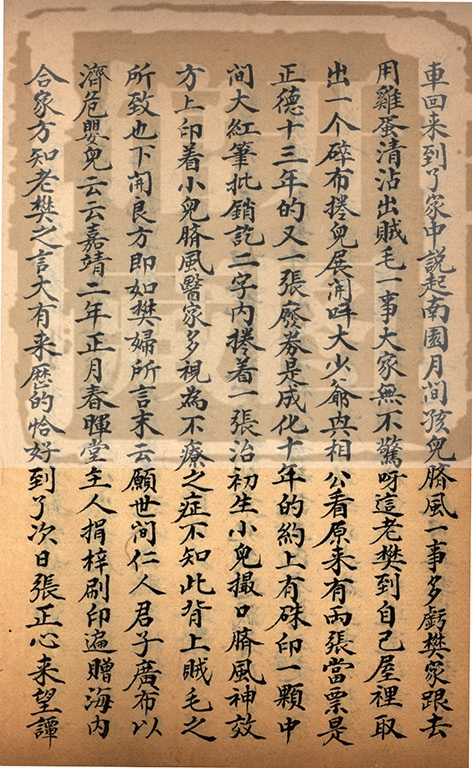 車回来到了家中説起南園月間孩兒臍風一事多虧樊家跟去
用雞蛋清沾出賊毛一事大家無不驚呀這老樊到自己屋裡取
出一个碎布捲兒展開呌大少爺與相公看原来有兩張當票是
正德十三年的又一張廢券是成化十年的約上有硃印一顆中
间大紅筆批銷訖二字内捲着一張治初生小兒撮口臍風神效
方上印着小兒臍風醫家多視為不療之症不知此背上賊毛之
所致也下開良方即如樊婦所言末云願世间仁人君子廣布以
濟危嬰兒云云嘉靖二年正月春暉堂主人捐梓刷印遍贈海内
合家方知老樊之言大有来歷的恰好到了次日張正心来望譚